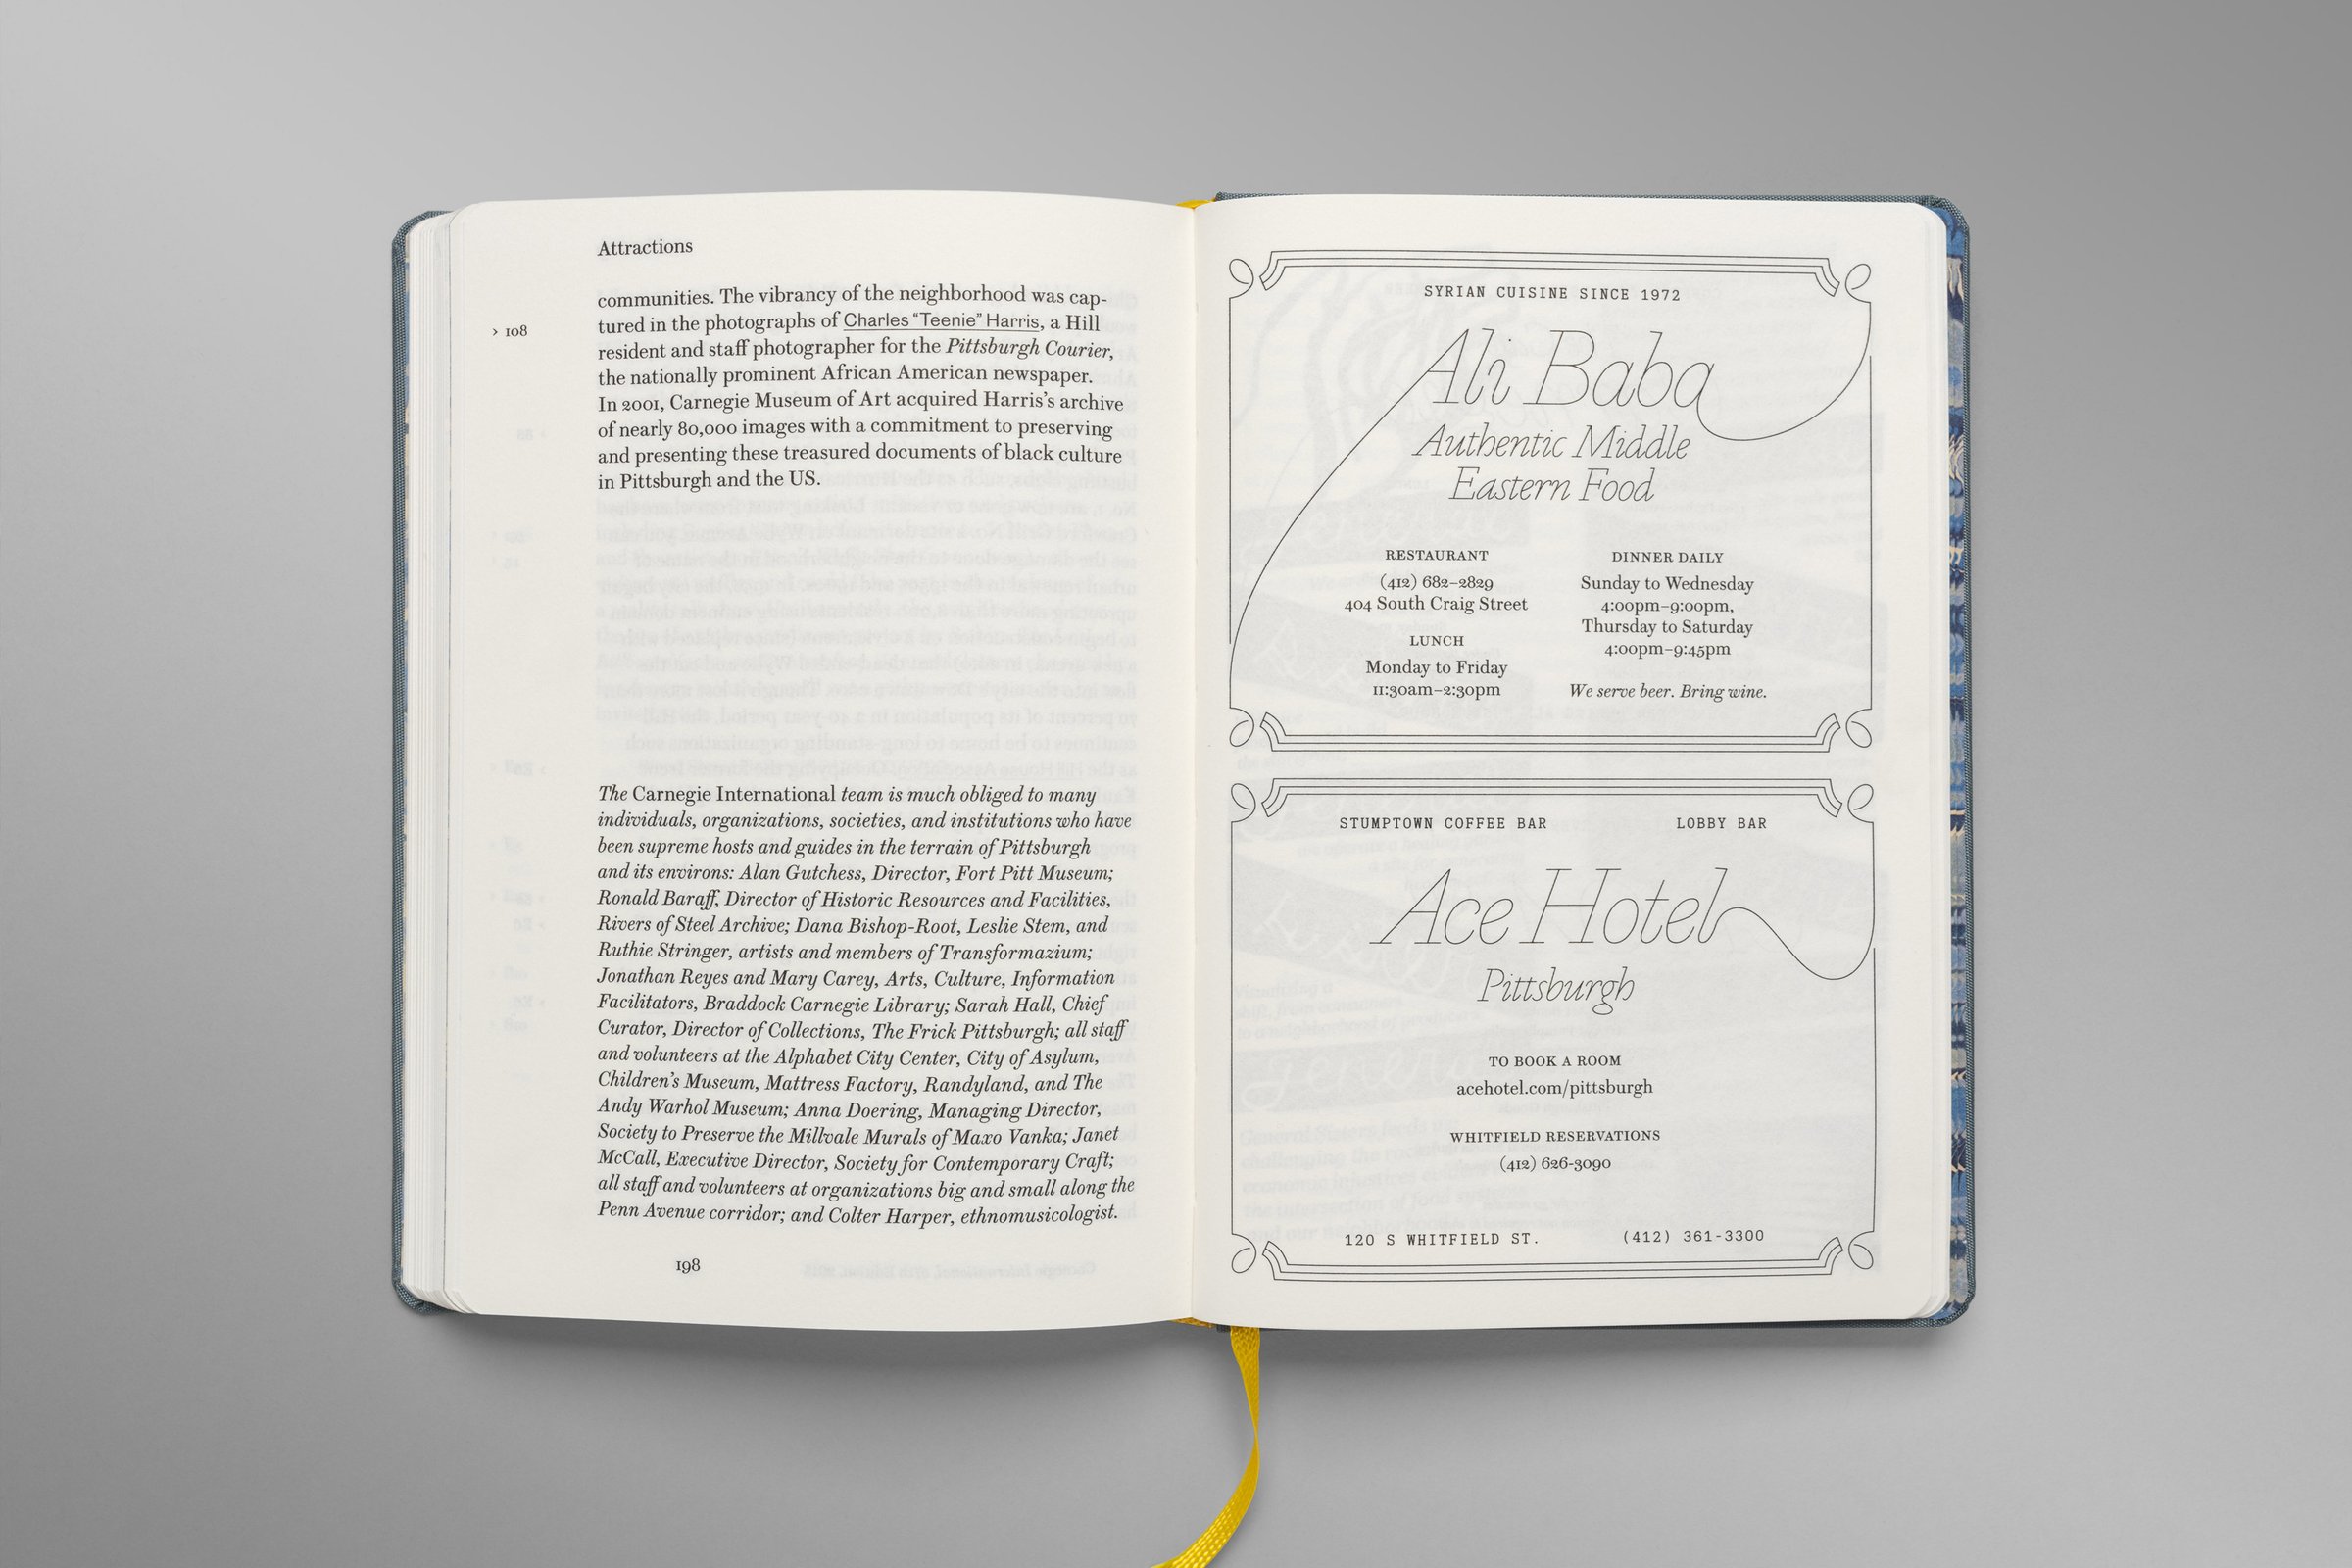 Attractions
communities. The vibrancy of the neighborhood was cap-
> 108
tured in the photographs of Charles “Teenie” Harris, a Hill
resident and staff photographer for the Pittsburgh Courier,
the nationally prominent African American newspaper.
In 2001, Carnegie Museum of Art acquired Harris’s archive
of nearly 80,000 images with a commitment to preserving
and presenting these treasured documents of black culture
in Pittsburgh and the US.
The Carnegie International team is much obliged to many
individuals, organizations, societies, and institutions who have
been supreme hosts and guides in the terrain of Pittsburgh
and its environs: Alan Gutchess, Director, Fort Pitt Museum;
Ronald Baraff, Director of Historic Resources and Facilities,
Rivers of Steel Archive; Dana Bishop-Root, Leslie Stem, and
Ruthie Stringer, artists and members of Transformazium;
Jonathan Reyes and Mary Carey, Arts, Culture, Information
Facilitators, Braddock Carnegie Library; Sarah Hall, Chief
Curator, Director of Collections, The Frick Pittsburgh; all staff
and volunteers at the Alphabet City Center, City of Asylum,
Children’s Museum, Mattress Factory, Randyland, and The
Andy Warhol Museum; Anna Doering, Managing Director,
Society to Preserve the Millvale Murals of Maxo Vanka; Janet
McCall, Executive Director, Society for Contemporary Craft;
all staff and volunteers at organizations big and small along the
Penn Avenue corridor; and Colter Harper, ethnomusicologist.
198
SYRIAN CUISINE SINCE 1972
Ali Baba
Authentic Middle
Eastern Food
RESTAURANT
(412) 682–2829
404 South Craig Street
LUNCH
Monday to Friday
11:30am–2:30pm
DINNER DAILY
Sunday to Wednesday
4:00pm–9:00pm,
Thursday to Saturday
4:00pm–9:45pm
We serve beer. Bring wine.
STUMPTOWN COFFEE BAR
LOBBY BAR
Ace Hotel
Pittsburgh
TO BOOK A ROOM
acehotel.com/pittsburgh
WHITFIELD RESERVATIONS
(412) 626-3090
120 S WHITFIELD ST.
(412) 361-3300